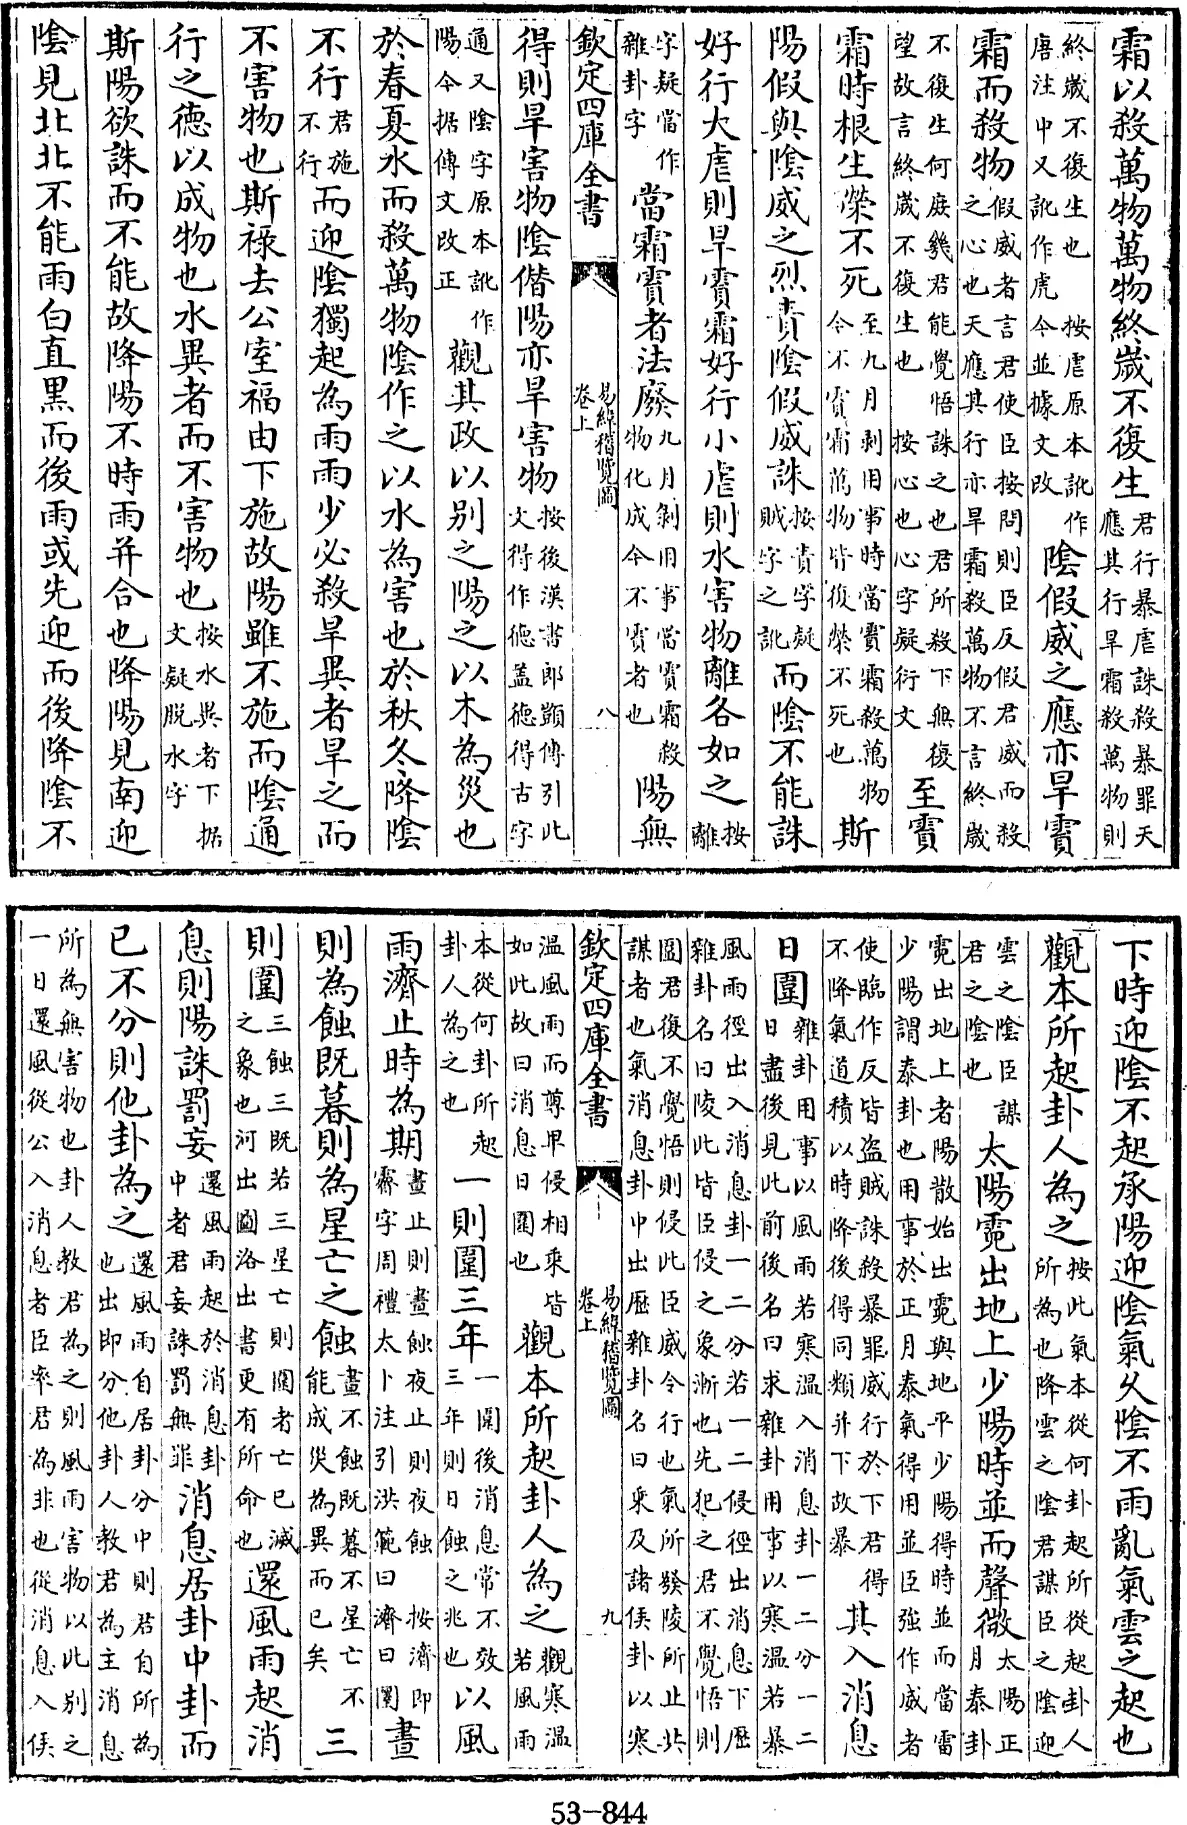 霜以殺萬物萬物終嵗不復生君行暴虐誅殺暴罪天應其行旱霜殺萬物則
終嵗不復生也按虐原本訛作唐注中又訛作虎今並據文改陰假威之應亦旱霣
霜而殺物假威者言君使臣按問則臣反假君威而殺之心也天應其行亦旱霜殺萬物不言終嵗
不復生何庶幾君能覺悟誅之也君所殺下無復望故言終嵗不復生也按心也心字疑衍文至霣
霜時根生榮不死至九月剥用事時當霣霜殺萬物今不霣霜萬物皆復榮不死也斯
陽假與陰威之烈責陰假威誅按責字疑賊字之訛而陰不能誅
好行大虐則旱霣霜好行小虐則水害物離各如之按離
字疑當作雜卦字當霜霣者法廢九月剝用事當霣霜殺物化成今不霣者也陽無
欽定四庫全書 易緯稽覽圖卷上 八
得則旱害物陰僭陽亦旱害物按後漢書郎顗傳引此文得作德蓋德得古字
通又陰字原本訛作陽今据傳文改正觀其政以别之陽之以木為災也
於春夏水而殺萬物陰作之以水為害也於秋冬降陰
不行君施不行而迎陰獨起為雨雨少必殺旱異者旱之而
不害物也斯禄去公室福由下施故陽雖不施而陰通
行之德以成物也水異者而不害物也按水異者下据文疑脱水字
斯陽欲誅而不能故降陽不時雨并合也降陽見南迎
陰見北北不能雨白直黒而後雨或先迎而後降陰不
下時迎陰不起承陽迎陰氣久陰不雨亂氣雲之起也
觀本所起卦人為之按此氣本從何卦起所從起卦人所為也降雲之陰君謀臣之陰迎
雲之陰臣謀君之陰也太陽霓出地上少陽時並而聲微太陽正月泰卦
霓出地上者陽散始出霓與地平少陽得時並而當雷少陽謂泰卦也用事於正月泰氣得用並臣強作威者
使臨作反皆盜賊誅殺暴罪威行於下君得不降氣道積以時降後得同類并下故暴其入消息
日圍雜卦用事以風雨若寒溫入消息卦一二分一二日盡後見此前後名曰求雜卦用事以寒溫若暴
風雨徑出入消息卦一二分若一二侵徑出消息下歴雜卦名曰陵此皆臣侵之象漸也先犯之君不覺悟則
圖君復不覺悟則侵此臣威令行也氣所發陵所止其謀者也氣消息卦中出歴雜卦名曰乗及諸侯卦以寒
欽定四庫全書 易緯稽覽圖卷上 九
溫風雨而尊卑侵相乗皆如此故曰消息日圍也觀本所起卦人為之觀寒溫若風雨
本從何卦所起卦人為之也一則圍三年一圍後消息常不效三年則日蝕之兆也以風
雨濟止時為期晝止則晝蝕夜止則夜蝕按濟即霽字周禮太卜注引洪範曰濟曰圛晝
則為蝕既暮則為星亡之蝕晝不蝕既暮不星亡不能成災為異而已矣三
則圍三蝕三既若三星亡則圍者亡已滅之象也河出圖洛出書更有所命也還風雨起消
息則陽誅罰妄還風雨起於消息卦中者君妄誅罰無罪消息居卦中卦而
已不分則他卦為之還風雨自居卦分中則君自所為也出即分他卦人教君為主消息
所為無害物也卦人教君為之則風雨害物以此别之一日還風從公入消息者臣率君為非也從消息入侯
53-844